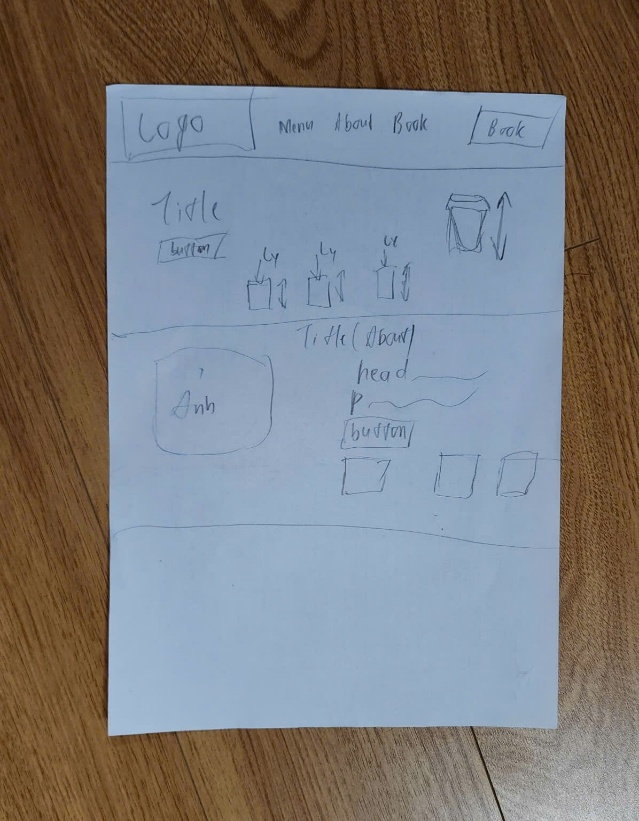 Logo
Menu About Book
Book
Title
button
Ly Ly Ly
Title (About)
Ảnh
head
P
button